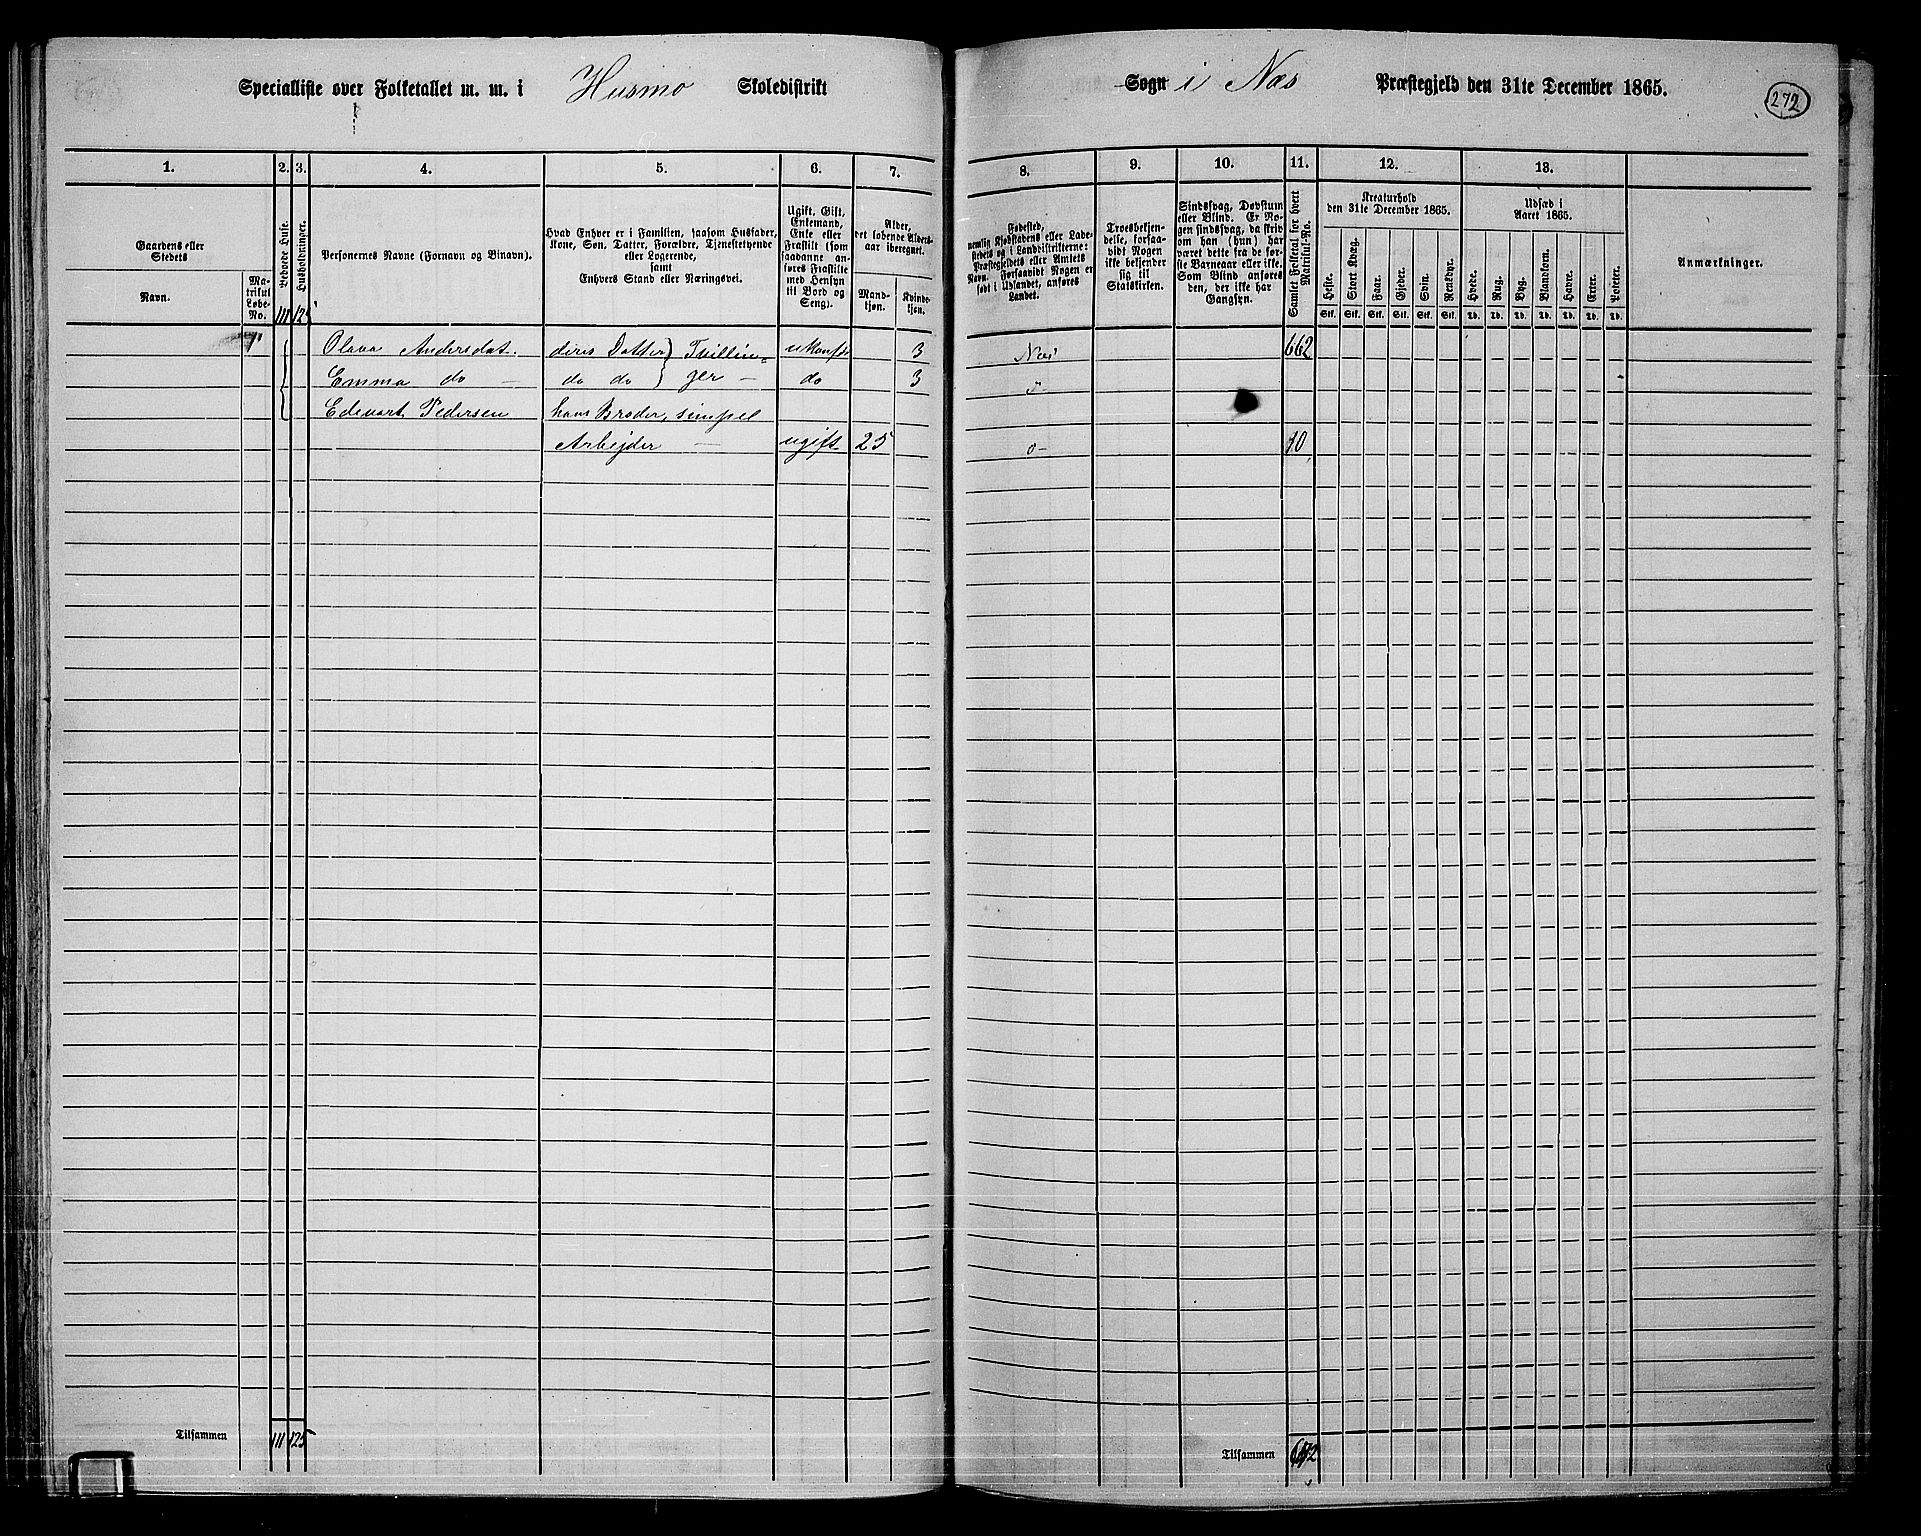 Specialliste over Folketallet m. m. i Husmo Skoledistrikt
Sogn i Næs Præstegjeld den 31te December 1865.
272
1.
2.
3.
4.
5.
6.
7.
8.
9.
10.
11.
12.
13.
Gaardens eller
Stedets
Navn.
Ma-
trikul
Løbe-
No.
Beboede Huse.
Husholdninger.
Personernes Navne (Fornavn og Binavn).
Hvad Enhver er i Familien, saasom Husfader,
Kone, Søn, Datter, Forældre, Tjenestetyende
eller Logerende,
samt
Enhvers Stand eller Næringsvei.
Ugift, Gift,
Enkemand,
Enke eller
Fraskilt (som
saadanne an-
føres Fraskilte
med Hensyn
til Bord og
Seng).
Alder,
det løbende Alders-
aar iberegnet.
Mand-
kjøn.
Kvinde-
kjøn.
Fødested,
nemlig Kjøbstadens eller Lade-
stedets og i Landdistrikterne:
Præstegjeldets eller Amtets
Navn. Forsaavidt Nogen er
født i Udlandet, anføres
Landet.
Troesbekjen-
delse, forsaa-
vidt Nogen
ikke bekjender
sig til
Statskirken.
Sindssvag, Døvstum
eller Blind. Er No-
gen sindssvag, da skriv
om han (hun) har
været dette fra de før-
ste Barneaar eller ikke.
Som Blind anføres
den, der ikke har
Gangsyn.
Samlet Folketal for hvert
Matrikul-No.
Kreaturhold
den 31te December 1865.
Heste.
Stort Kvæg.
Faar.
Gjeder.
Svin.
Rensdyr.
Stk. Stk. Stk. Stk. Stk. Stk.
Udsæd i
Aaret 1865.
Hvede.
Rug.
Byg.
Blandkorn.
Havre.
Erter.
Poteter.
Td. Td. Td. Td. Td. Td. Td.
Anmærkninger.
111 125
Olava Andersdat. deres Datter } Tvillin- ukonf. 3 Næs 662
Emma do — do do } ger — do 3 o-
Edevart Pedersen hans Broder, simpel
Arbejder — ugift 25 o- 10
Tilsammen 111 125
Tilsammen 672